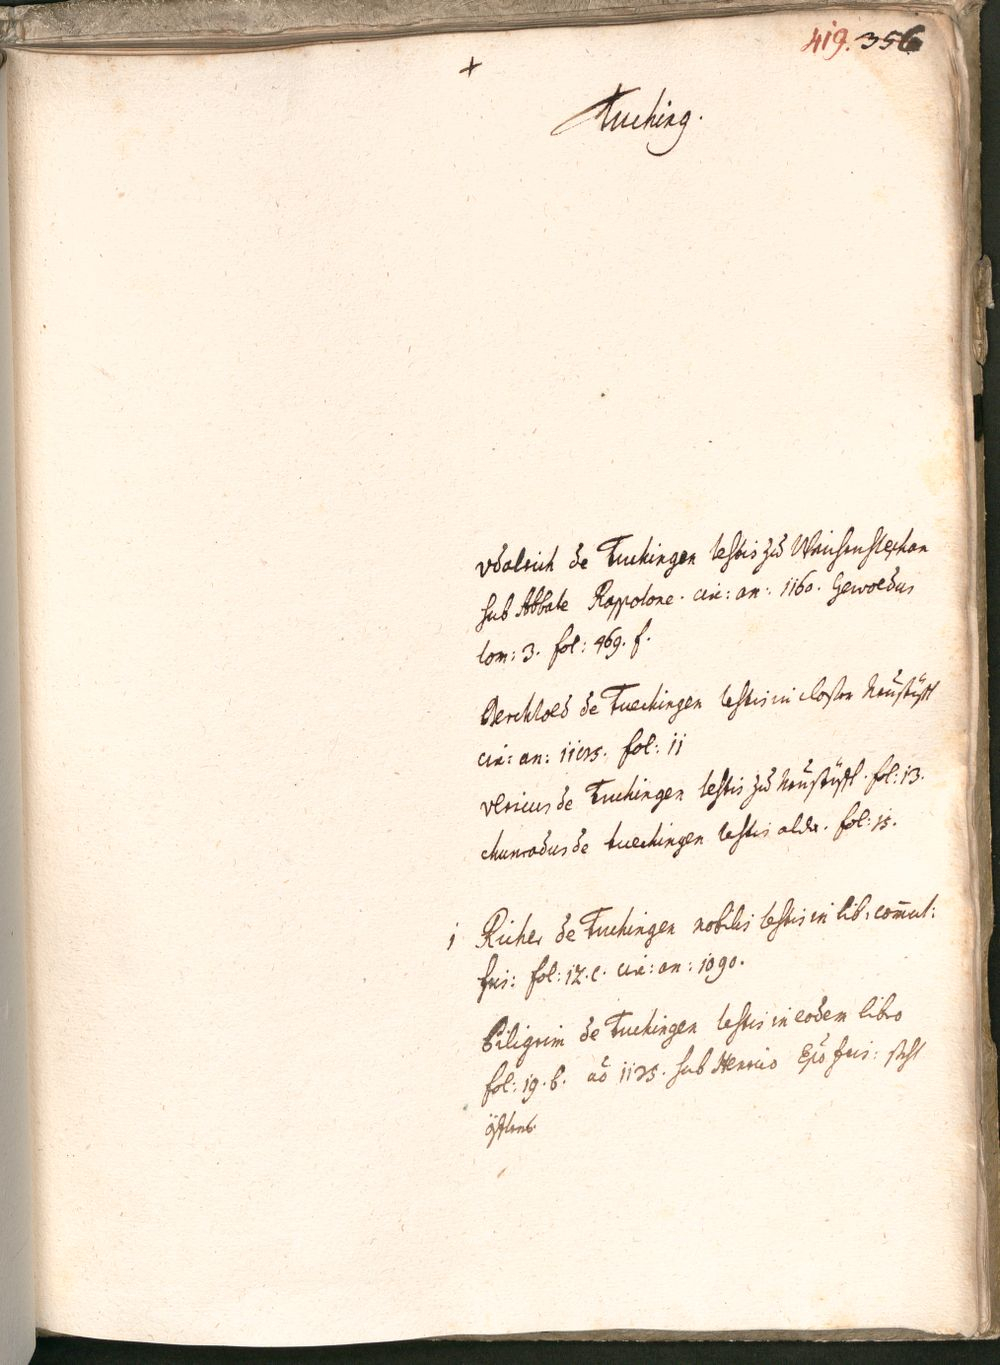 419. 356
+
Tuching.
Vdalrich de Tuchingen testis zu Weichenstephan
sub Abbate Rappolone. circ: an: 1160. Gewoldus
tom: 3. fol: 469. f.
Berchtold de Tuechingen testis in closter Neustifft
cir: an: fol: 11
Vlricus de Tuchingen testis zu Neustifft. fol: 13.
Chunradus de tuechingen testis alda. fol: 15.
1 Richer de Tuchingen nobilis testis in lib: commut:
fris: fol: 12. c. cir: an: 1090.
Piligrim de Tuchingen testis in eodem libro
fol: 19. b. ao sub Henrico Epo fris: steht